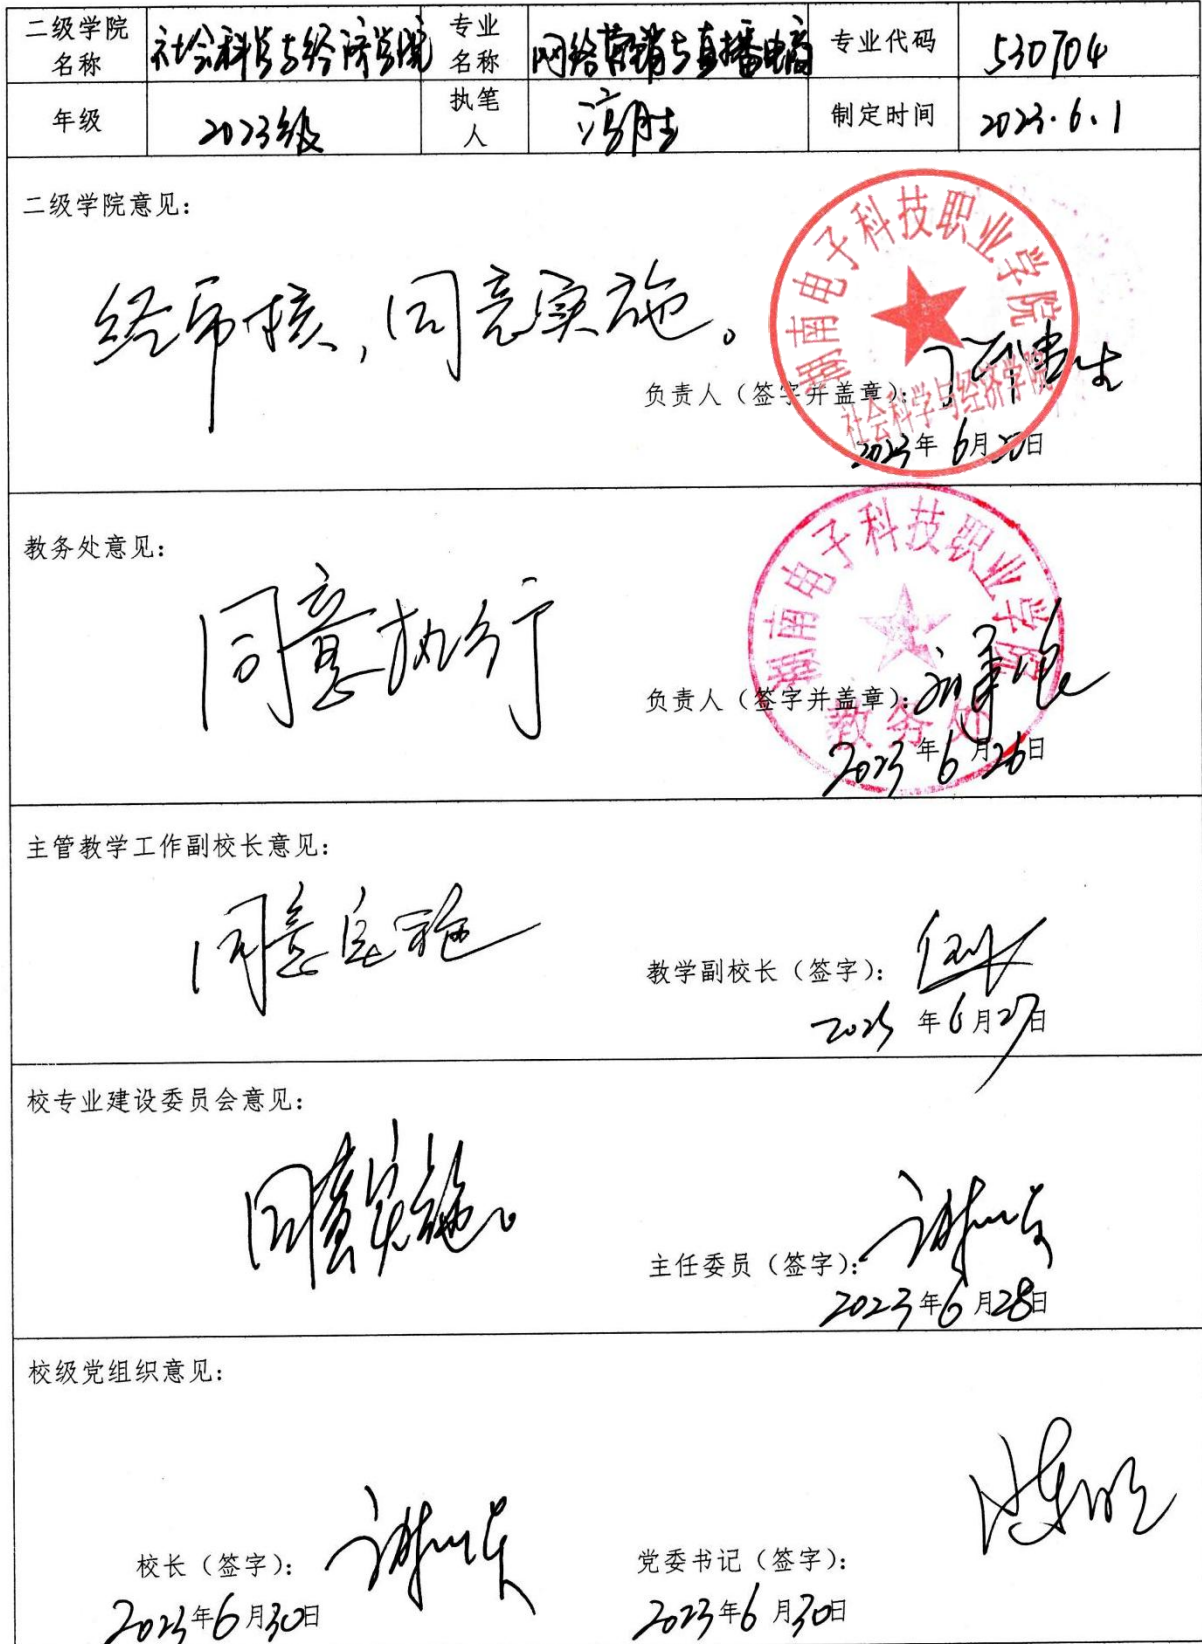 二级学院名称 社会科学与经济学院 专业名称 网络营销与直播电商 专业代码 530704
年级 2023级 执笔人 制定时间 2023.6.1
二级学院意见：
经审核，同意实施。
湖南电子科技职业学院
社会科学与经济学院
负责人（签字并盖章）：
2023年6月20日
教务处意见：
同意执行
湖南电子科技职业学院
教务处
负责人（签字并盖章）：
2023年6月26日
主管教学工作副校长意见：
同意实施
教学副校长（签字）：
2023年6月27日
校专业建设委员会意见：
同意实施。
主任委员（签字）：
2023年6月28日
校级党组织意见：
校长（签字）：
2023年6月30日
党委书记（签字）：
2023年6月30日